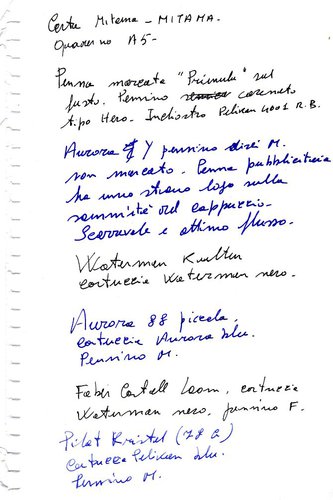 Carta Mitama - MITAMA.
Quaderno A5-
Penna marcata "Primula" sul
fusto. Pennino carenato
tipo Hero. Inchiostro Pelikan 4001 R.B.
Aurora Y pennino direi M.
non marcato. Penna pubblicitaria
ha uno strano logo sulla
sommità del cappuccio.
Scorrevole e ottimo flusso.
Waterman Kultur
cartuccia Waterman nero.
Aurora 88 piccola,
cartuccia Aurora blu.
Pennino M.
Faber Castell Loom, cartuccia
Waterman nero, pennino F.
Pilot Kristal (78 G)
Cartuccia Pelikan blu.
Pennino M.